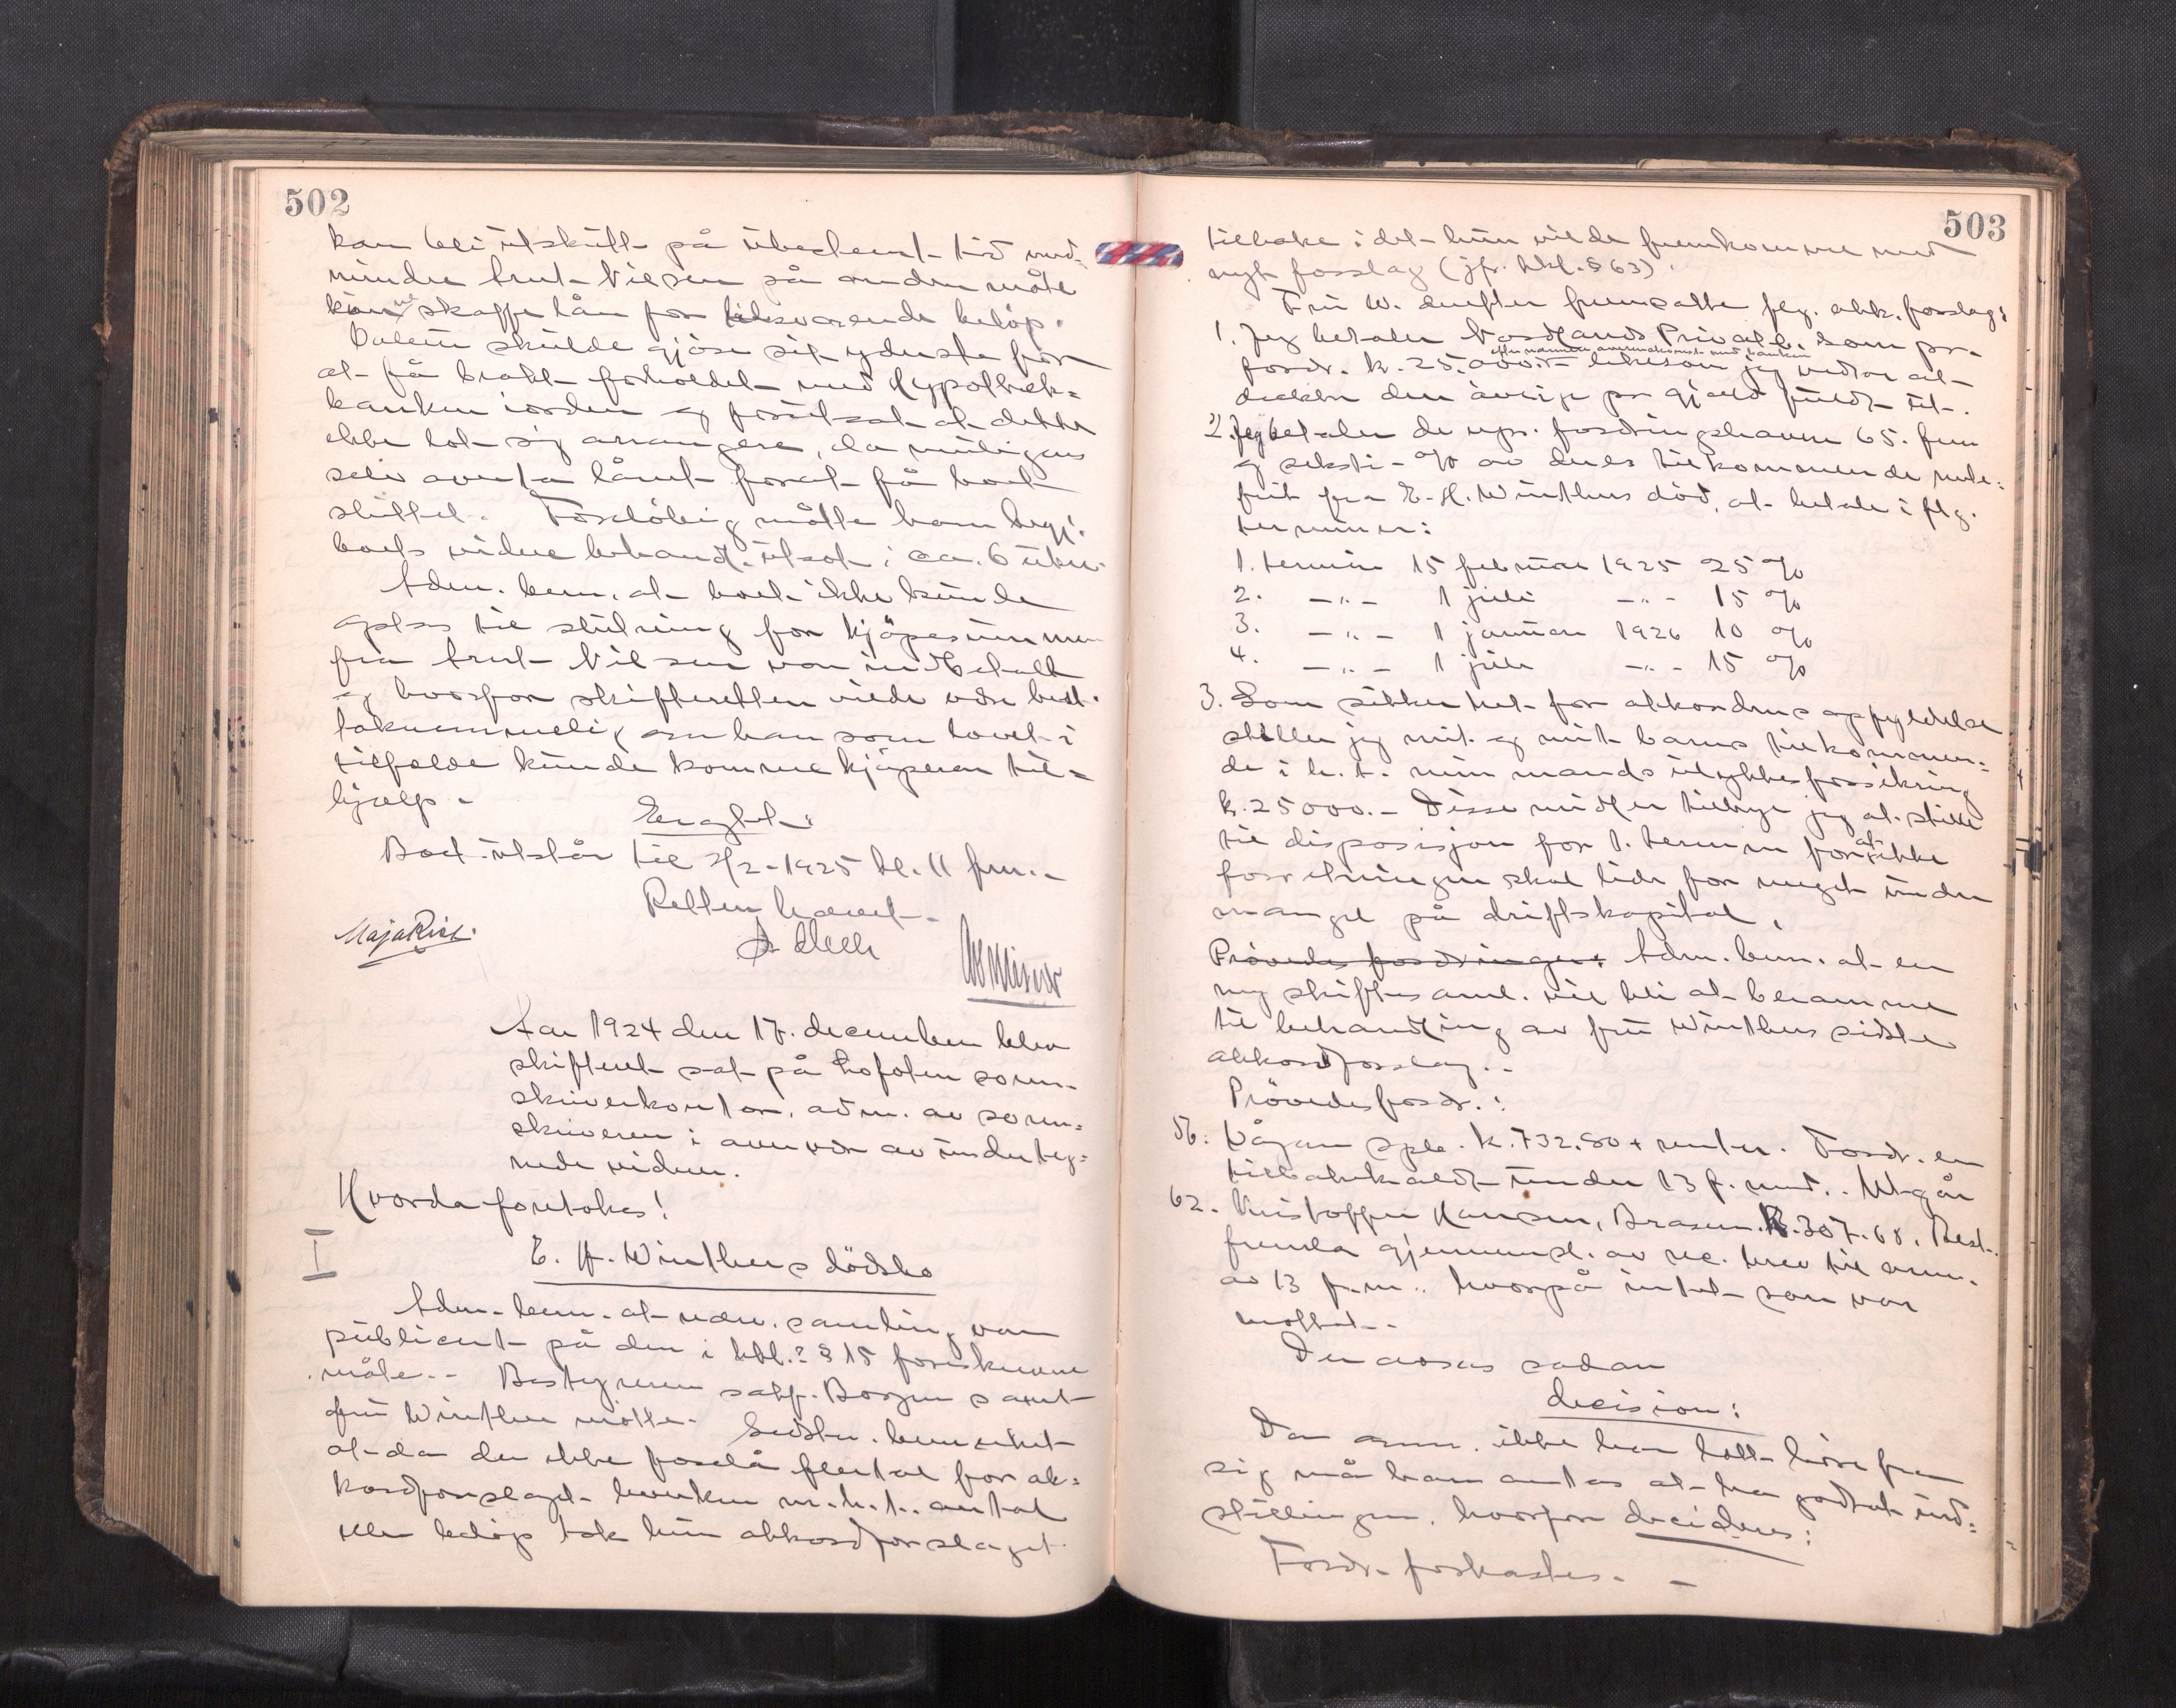 502
kan bli utskutt på ubestemt tid med=
mindre Arnt Nilsen på anden måte
kunne skaffe lån for tilsvarende beløp.
skulde gjöre sit yderste for
at få bragt forholdet med Hypothek=
banken iorden og forutsat at dette
ikke lot sig arrangere, da muligens
selv overta lånet forat få boet
sluttet. Foreløbig måtte han begj.
boets videre behandl. utsat i ca. 6 uker.
Adm. bem. at boet ikke kunde
optas til slutning før kjøpesummen
fra Arnt Nilsen var indbetalt
og hvorfor skifteretten vilde være
taknemmelig om han som lovet i
tilfelde kunde komme kjøperen til=
hjælp.
Eragtet:
Boet utstår til 2/2-1925 kl. 11 fm.
Retten hævet.
Maja Rist.
Aar 1924 den 17. december blev
skifteret sat på Lofoten soren=
skriverkontor, adm. av soren=
skriveren i overvær av underteg=
nede vidner.
Hvorda foretokes!
I
E. H. Winthers dödsbo
Adm. bem. at nærv. samling var
publicert på den i kkl. § 15 foreskrevne
måte. Bestyreren sakf. Borgen samt
fru Winther mötte. Sidstn. bemerket
at da der ikke forelå flertal for ak=
kordforslaget hverken m.h.t. antal
eller beløp tok hun akkordforslaget
503
tilbake i det hun vilde fremkomme med
nyt forslag (jfr. kkl. § 63).
Fru W. derefter fremsatte flg. akk. forslag:
1. Jeg betaler Nordlands Privatb. som pr.
efter nærmere overenskomst med banken
fordr. k. 25.000.- likesom jeg vedtar at
dække den övrige pr. gjæld fuldt ut.
2. Jeg betaler de upr. fordringshavere 65. fem
og seksti- % av deres tilkommende rente=
frit fra E. H. Winthers död, at betale i flg.
terminer:
1. termin 15 februar 1925 25 %
2. -"- 1 juli -"- 15 %
3. -"- 1 januar 1926 10 %
4. -"- 1 juli -"- 15 %
3. Som sikkerhet for akkordens opfyldelse
stiller jeg mit og mit barns tilkommen=
de i h. t. min mands ulykkesforsikring
k. 25000.- Disse midler tilbyr jeg at stille
til disposisjon for 1. termin for at ikke
forretningen skal lide for meget under
mangel på driftskapital.
Prövedes fordringer: Adm. bem. at en
ny skiftesaml. vil bli at beramme
til behandling av fru Winthers sidste
akkordforslag..
Prövedes fordr.:
56. Vågan spb. k. 732.80 + renter. Fordr. er
tilbakekaldt under 13 f. md.. Utgår
62. Kristoffer Hansen, Brasen. K. 307.68. Best.
fremla gjenpart. av rec. brev til anm.
av 13 f.m.. hvorpå intet svar var
mottat..
Der avsaes sadan
decision:
Da anm. ikke har latt höre fra
sig må han antas at ha godtat ind=
stillingen, hvorfor decideres:
Fordr. forkastes. -